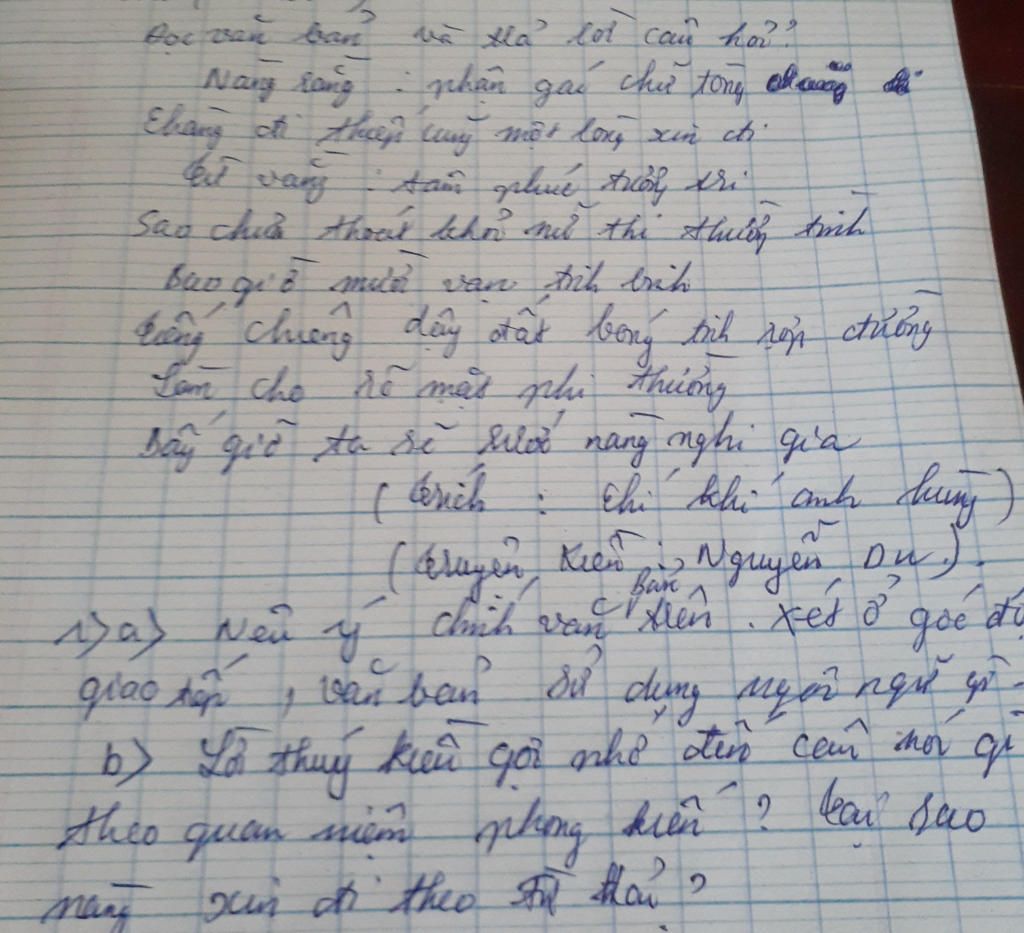 Đọc văn bản và trả lời câu hỏi?
Nàng rằng : phận gái chữ tòng
Chàng đi thiếp cũng một lòng xin đi
Từ rằng : tâm phúc tương tri
Sao chưa thoát khỏi nữ nhi thường tình
Bao giờ mười vạn tinh binh
Tiếng chiêng dậy đất bóng tinh rợp đường
Làm cho rõ mặt phi thường
Bấy giờ ta sẽ rước nàng nghi gia
(Trích : Chí khí anh hùng)
(Truyện Kiều : Nguyễn Du).
1>a> Nêu ý chính văn bản trên. Xét ở góc độ
giao tiếp, văn bản sử dụng ngôn ngữ gì
b> Lời Thuý Kiều gợi nhớ đến câu nói gì
theo quan niệm phong kiến ? tại sao
nàng xin đi theo Từ Hải ?